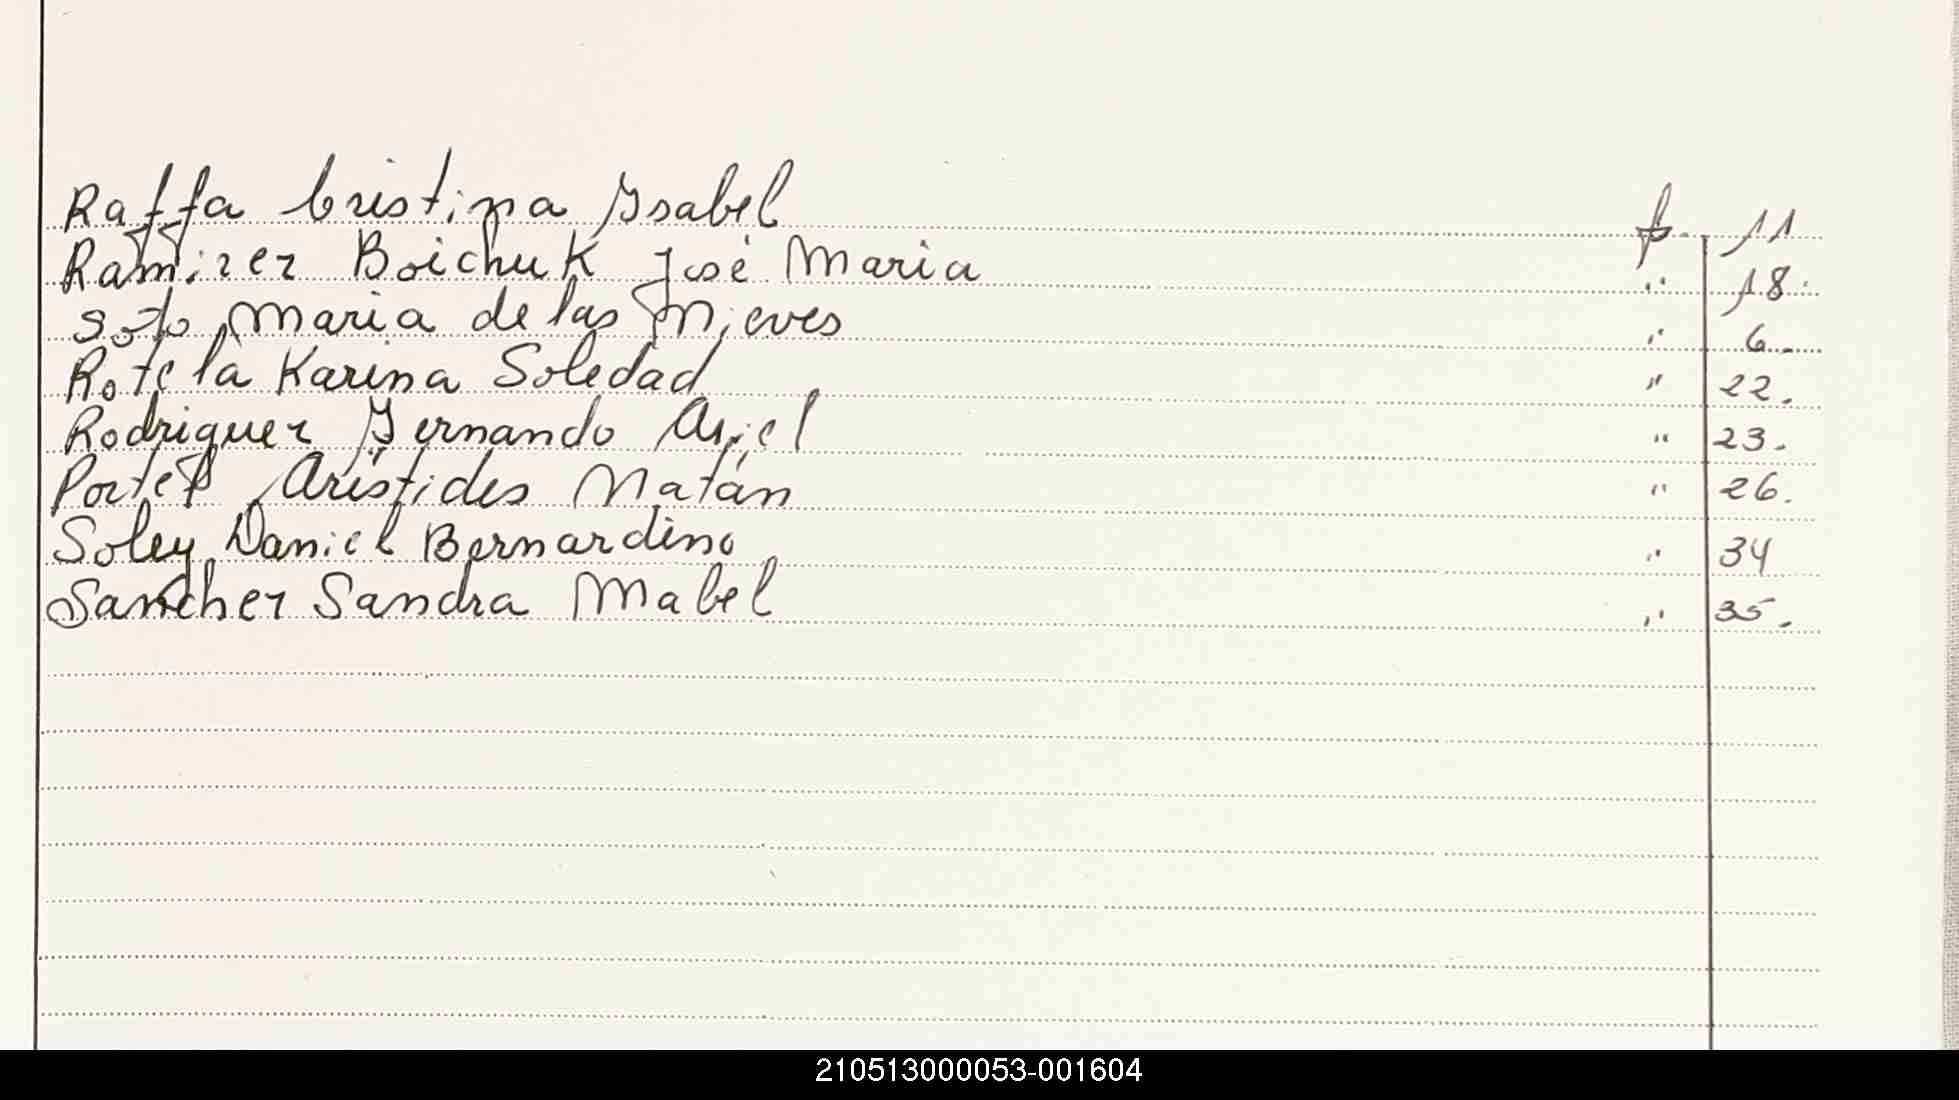 Raffa Cristina Ysabel f. 11
Ramirez Boichuk José Maria " 18.
Soto Maria de las Nieves " 6.
Rotela Karina Soledad " 22.
Rodriguez Fernando Ariel " 23.
Arístides Natán " 26.
Soley Daniel Bernardino " 34
Sanchez Sandra Mabel " 35.
210513000053-001604